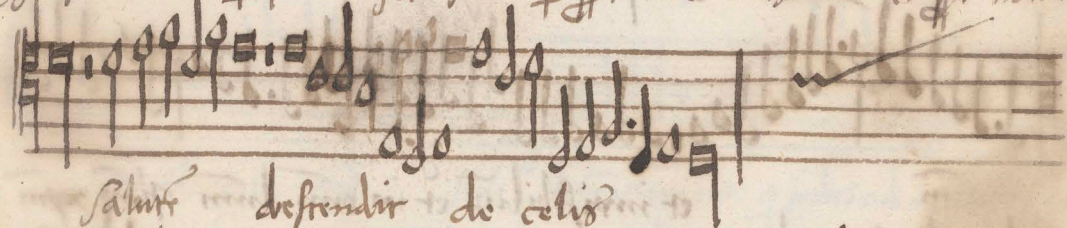 salutē descendit de celis